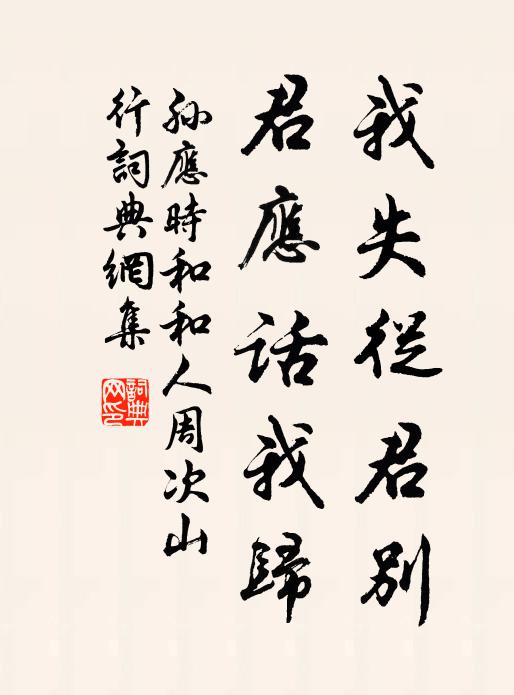 我失從君別
君應話我歸
孫應時和和人周次山
行詞典網集
詞典
网印